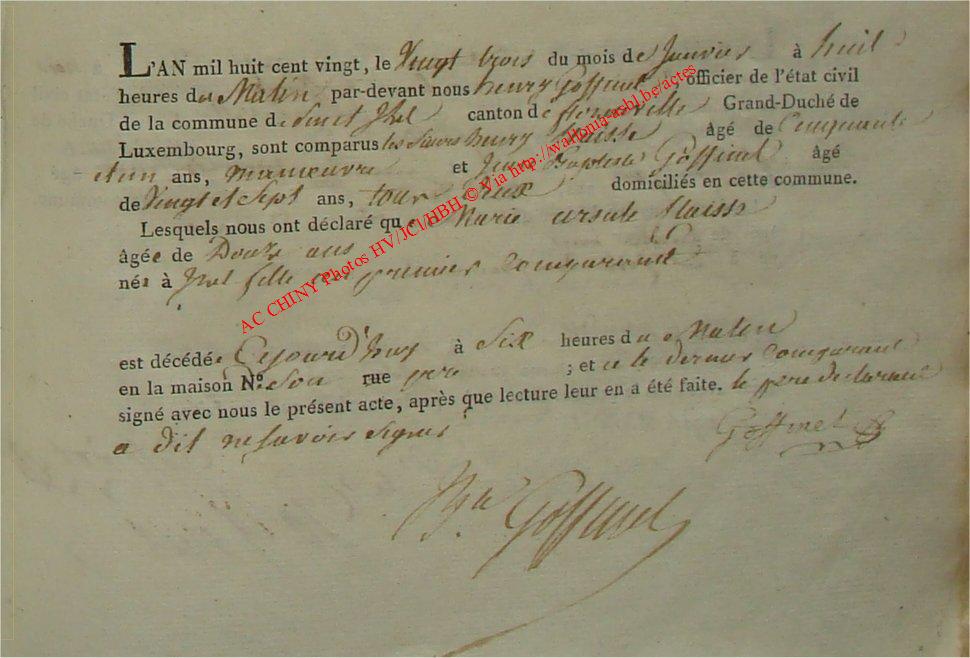 L'AN mil huit cent vingt, le Vingt trois du mois de Janvier à huit
heures du Matin par-devant nous henry Goffinet officier de l'état civil
de la commune de canton de florenville Grand-Duché de
Luxembourg, sont comparus les Sieurs henry âgé de Cinquante
et un ans, manœuvre et Jean Baptiste Goffinet âgé
de Vingt et Sept ans, tous deux domiciliés en cette commune.
Lesquels nous ont déclaré que Marie ursule
âgée de Douze ans
née à fille du premier Comparant
est décédée Cejourd'huy à Six heures du Matin
en la maison N.º Son rue pere ; et ce le dernier Comparant
signé avec nous le présent acte, après que lecture leur en a été faite. le pere declarant
a dit ne savoir Signer
Goffinet
Goffinet
AC CHINY Photos HV/JCI/HBH © Via http://wallonia-asbl.be/actes